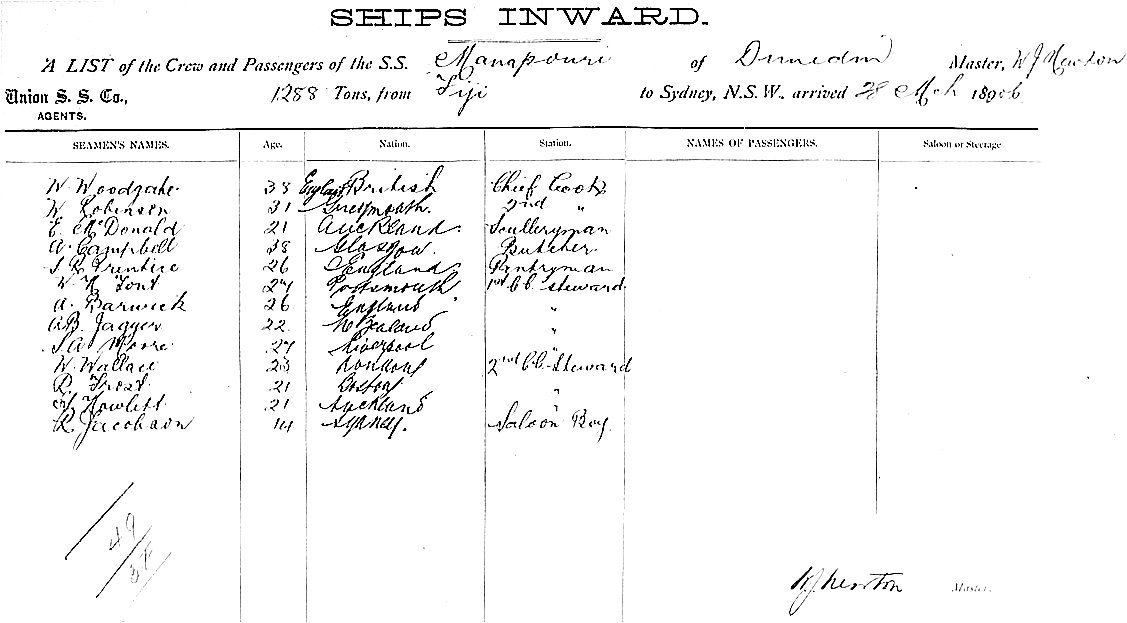 SHIPS INWARD.
A LIST of the Crew and Passengers of the S.S. Manapouri of Dunedin Master, W J Newton
Union S. S. Co., 1288 Tons, from Fiji to Sydney, N.S.W., arrived 28 Mch 1896
AGENTS.
SEAMEN'S NAMES. Age. Nation. Station. NAMES OF PASSENGERS. Saloon or Steerage
W. Woodgate 38 British Chief Cook
W Robinson 31 Greymouth. 2nd "
E. McDonald 21 Auckland. Sculleryman
A Campbell 38 Glasgow. Butcher
Prentice 26 England Pantryman
W 27 Portsmouth 1st C.C. steward.
A. Barwick 26 England "
B. Jagger 22 N Zealand "
Moore 27 Liverpool "
W. Wallace 23 London 2nd C.C. Steward
R. Frost 21 Boston "
Howlett 21 Auckland "
R. Jacobson 14 Sydney. Saloon Boy
49
W J Newton Master.